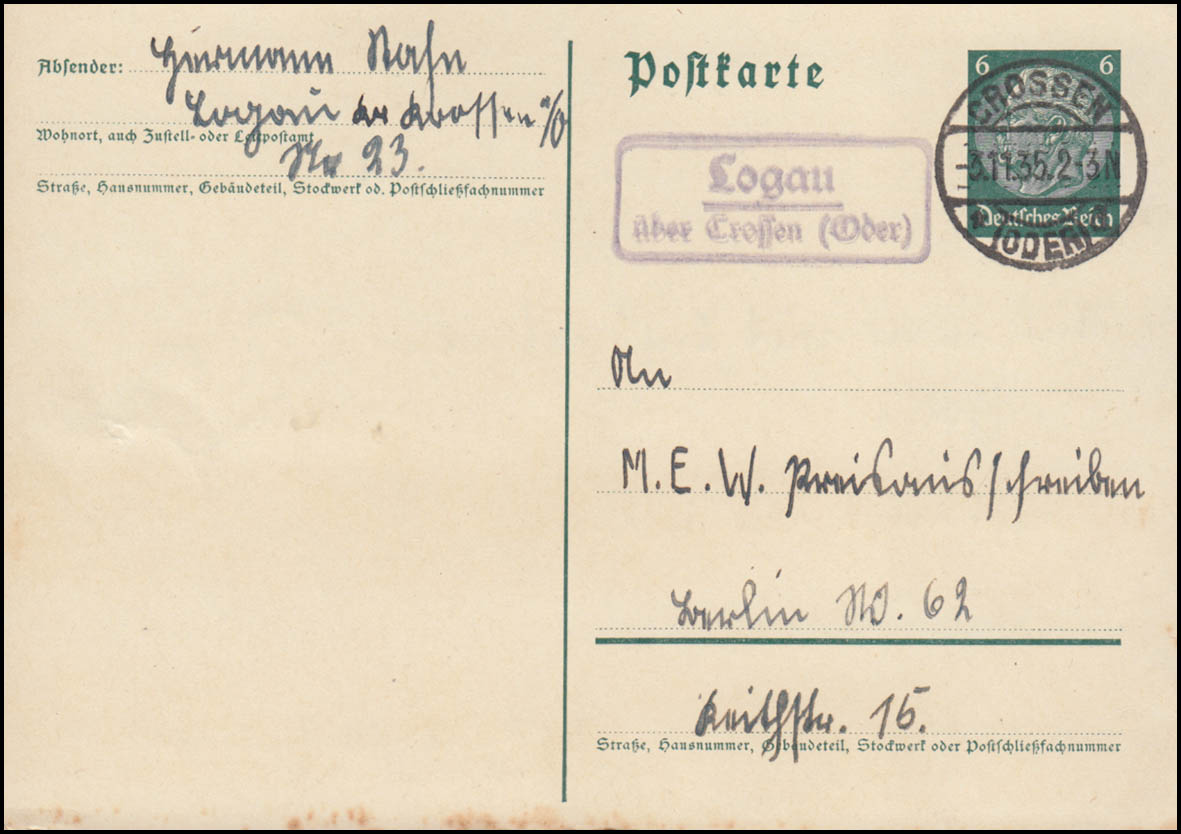 Absender: Hermann Rahn
Logau Kr Krossen a/O
Wohnort, auch Zustell- oder Leitpostamt
Nr 23.
Straße, Hausnummer, Gebäudeteil, Stockwerk od. Postschließfachnummer
Postkarte
6 6
Deutsches Reich
CROSSEN
-3.11.35.2-3N
(ODER)
Logau
über Crossen (Oder)
An
M. E. W. Preisausschreiben
Berlin W. 62
Keithstr. 15.
Straße, Hausnummer, Gebäudeteil, Stockwerk oder Postschließfachnummer